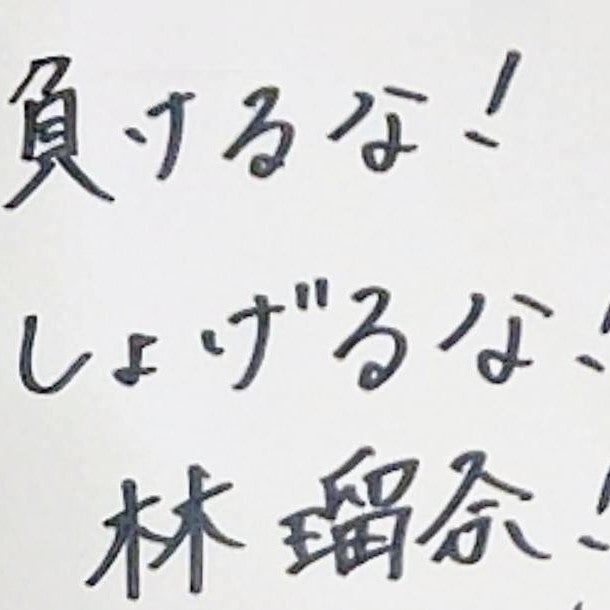 負けるな!
しょげるな!
林瑠奈!